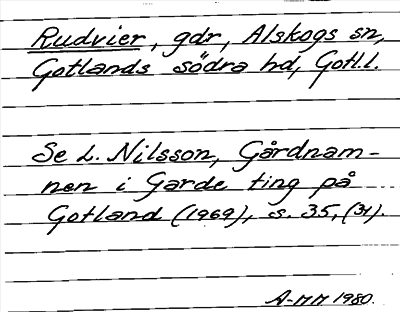 Rudvier, gdr, Alskogs sn,
Gotlands södra hd, Gotl.l.
Se L. Nilsson, Gårdnam-
nen i Garde ting på
Gotland (1969), s. 35, (31).
A-MM 1980.